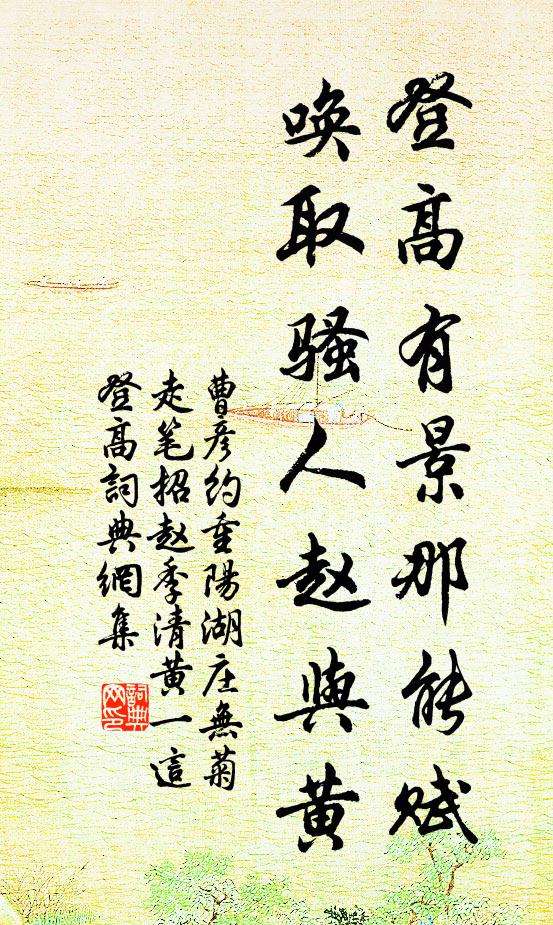 登高有景那能賦
喚取騷人赵與黃
曹彦約重陽湖庄無菊
走笔招赵季清黄一這
登高詞典網集
詞典
网印